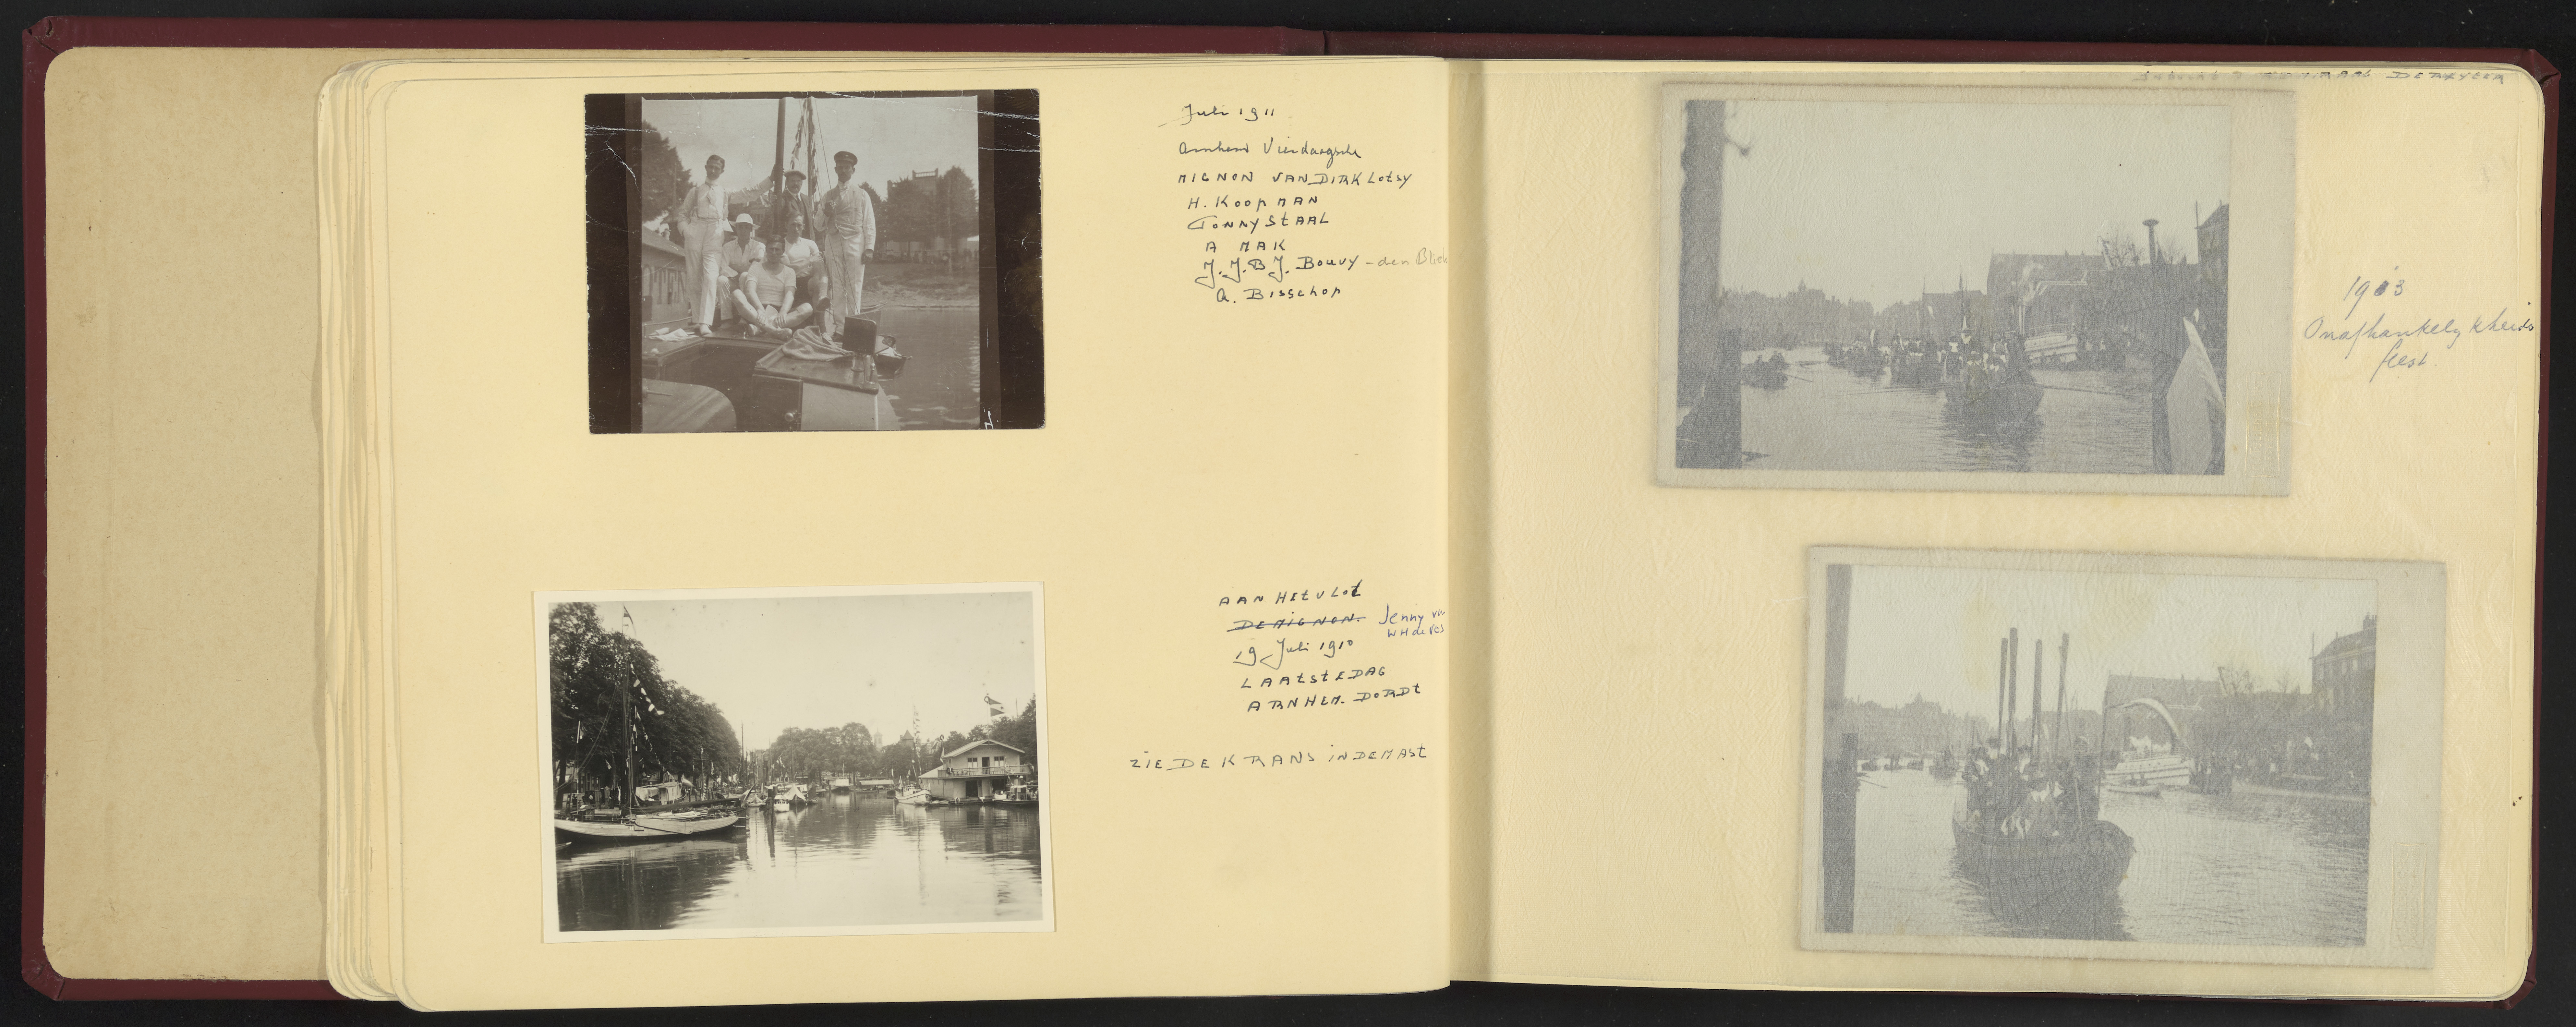 Juli 1911
Arnhem Vierdaagsche
MIGNON VAN DIRK Lotsy
H. KOOPMAN
TONNY StAAL
A MAK
J. J. B J. Bouvy - den Bliek
A. Bisschop
AAN HEt VLOt
DE MIGNON. Jenny van
WH de Vos
19 Juli 1910
LAAtStE DAG
ARNHEM. DORDt
ZIE DE KRANS iN DE MASt
DE RUYTER
1913
Onafhankelykheids
feest.